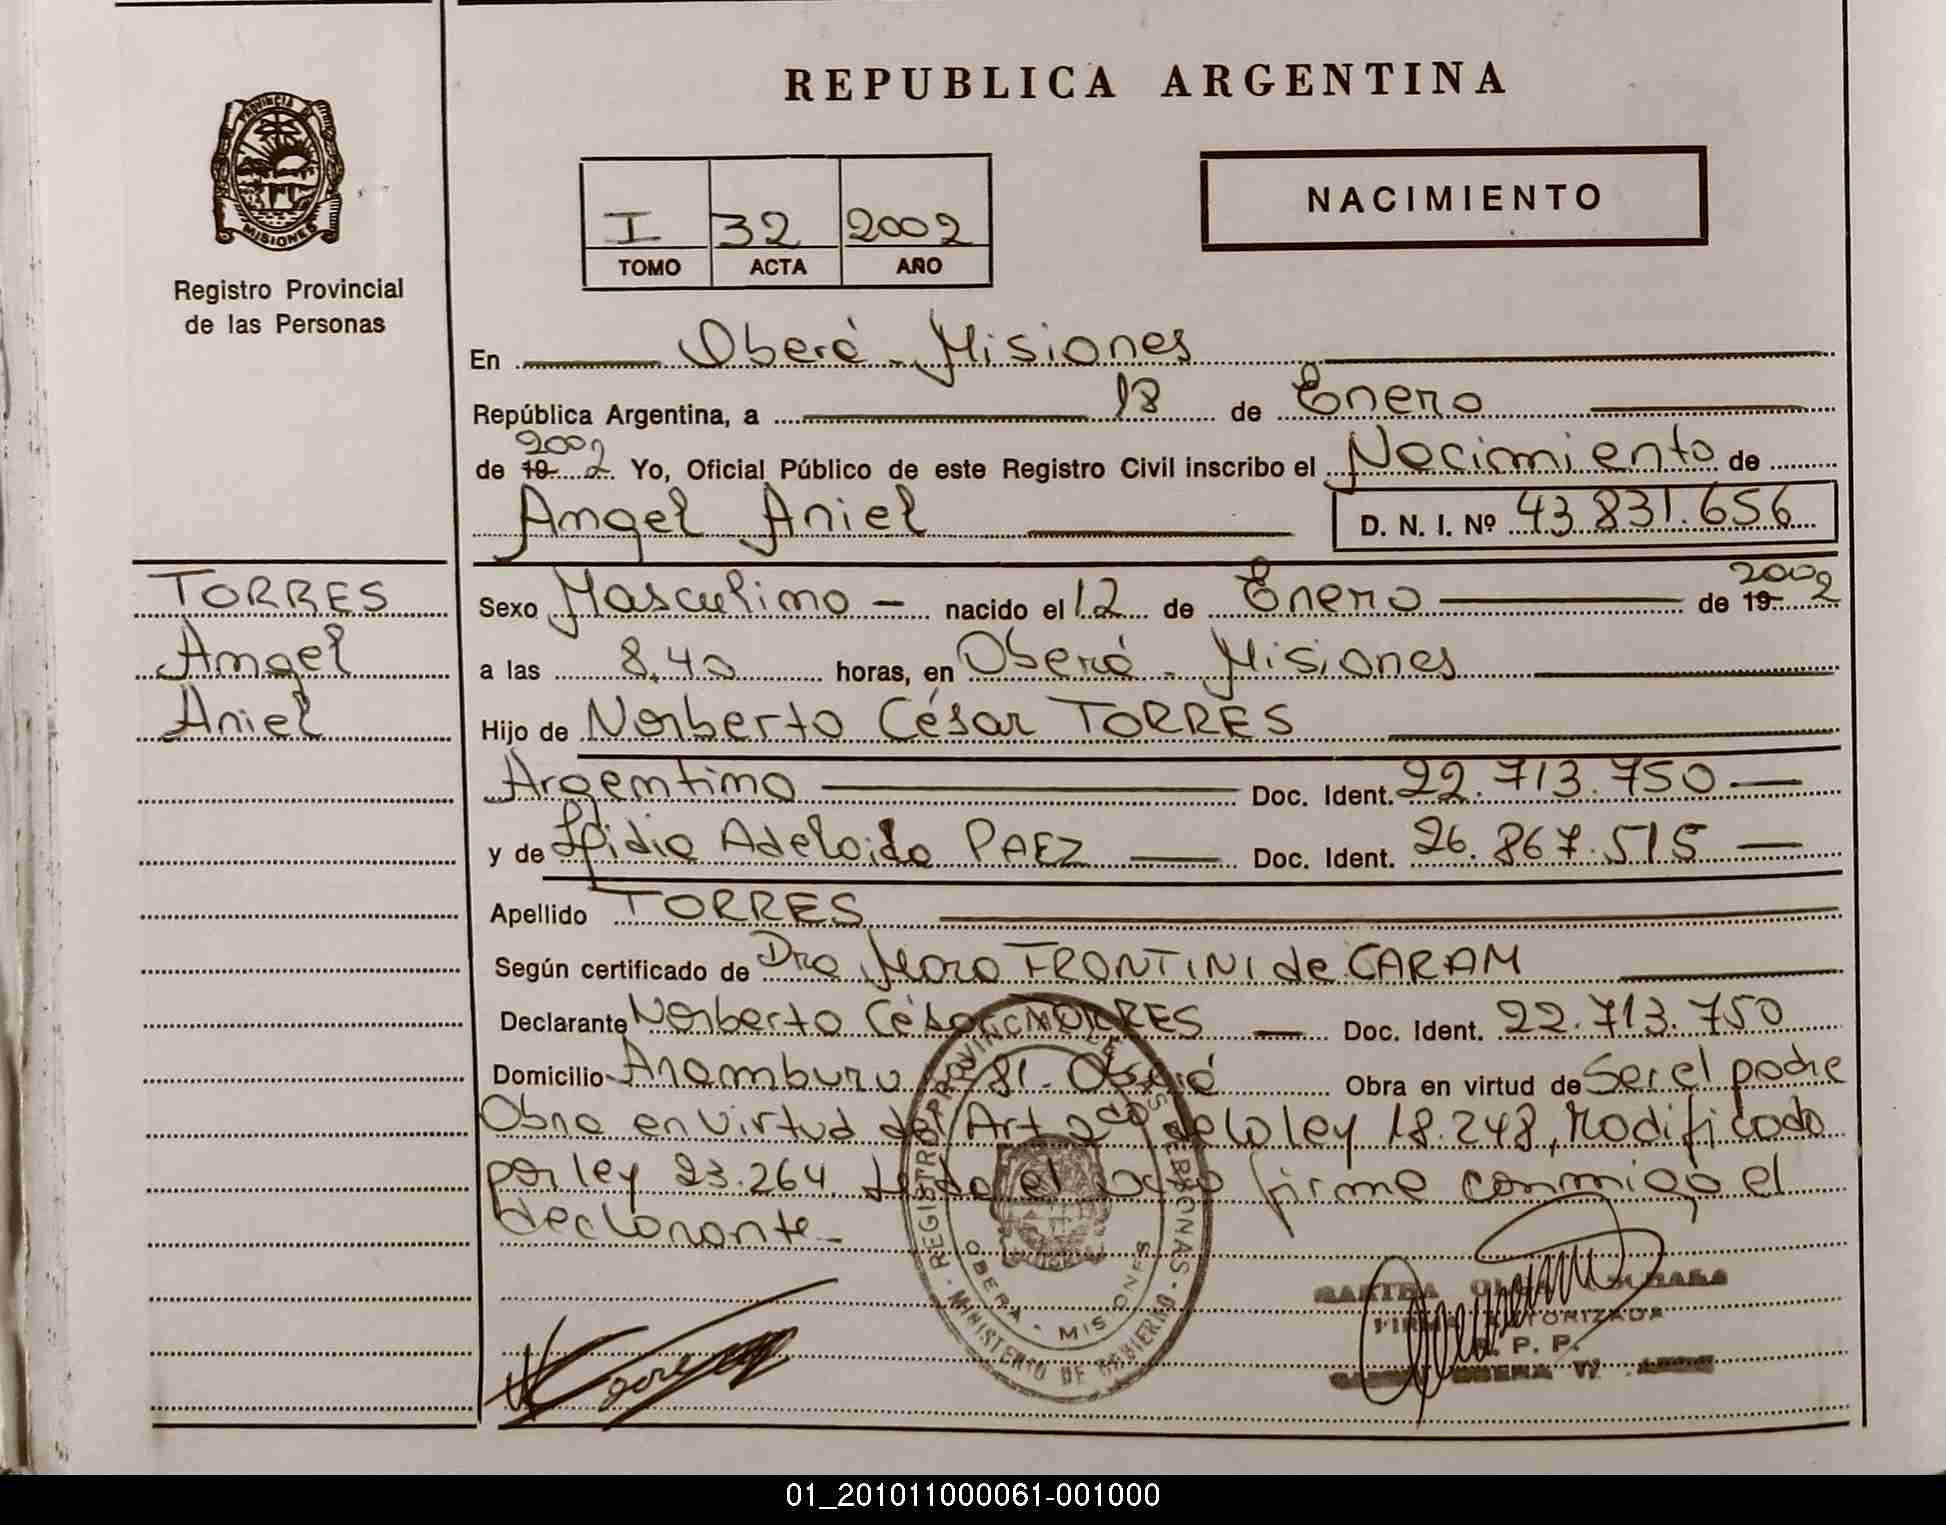 REPUBLICA ARGENTINA
PROVINCIA
MISIONES
Registro Provincial
de las Personas
I 32 2002
TOMO ACTA AÑO
NACIMIENTO
En Oberá - Misiones
República Argentina, a 18 de Enero
2002
de 19 2 Yo, Oficial Público de este Registro Civil inscribo el Nacimiento de
Angel Aniel D. N. I. Nº 43.831.656
TORRES
Angel
Aniel
2002
Sexo Masculino - nacido el 12 de Enero de 19 2
a las 8,40 horas, en Oberá - Misiones
Hijo de Norberto César TORRES
Argentino Doc. Ident. 22.713.750
y de Lidia Adelaida PAEZ Doc. Ident. 26.867.515
Apellido TORRES
Según certificado de Dra Mara FRONTINI de CARAM
Declarante Norberto César TORRES Doc. Ident. 22.713.750
Domicilio Aramburu Oberá Obra en virtud de Ser el padre
Obra en virtud del Art 2do de la ley 18.248, Modificado
por ley 23.264 Leída el acta firma conmigo el
declarante -
REGISTRO PROVINCIAL DE LAS PERSONAS
OBERA - MISIONES
MINISTERIO DE GOBIERNO
FIRMA AUTORIZADA
R. P. P.
01_201011000061-001000